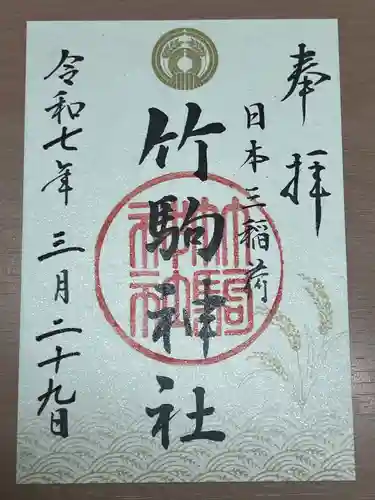 奉拝
日本三稲荷
竹駒神社
令和七年 三月二十九日